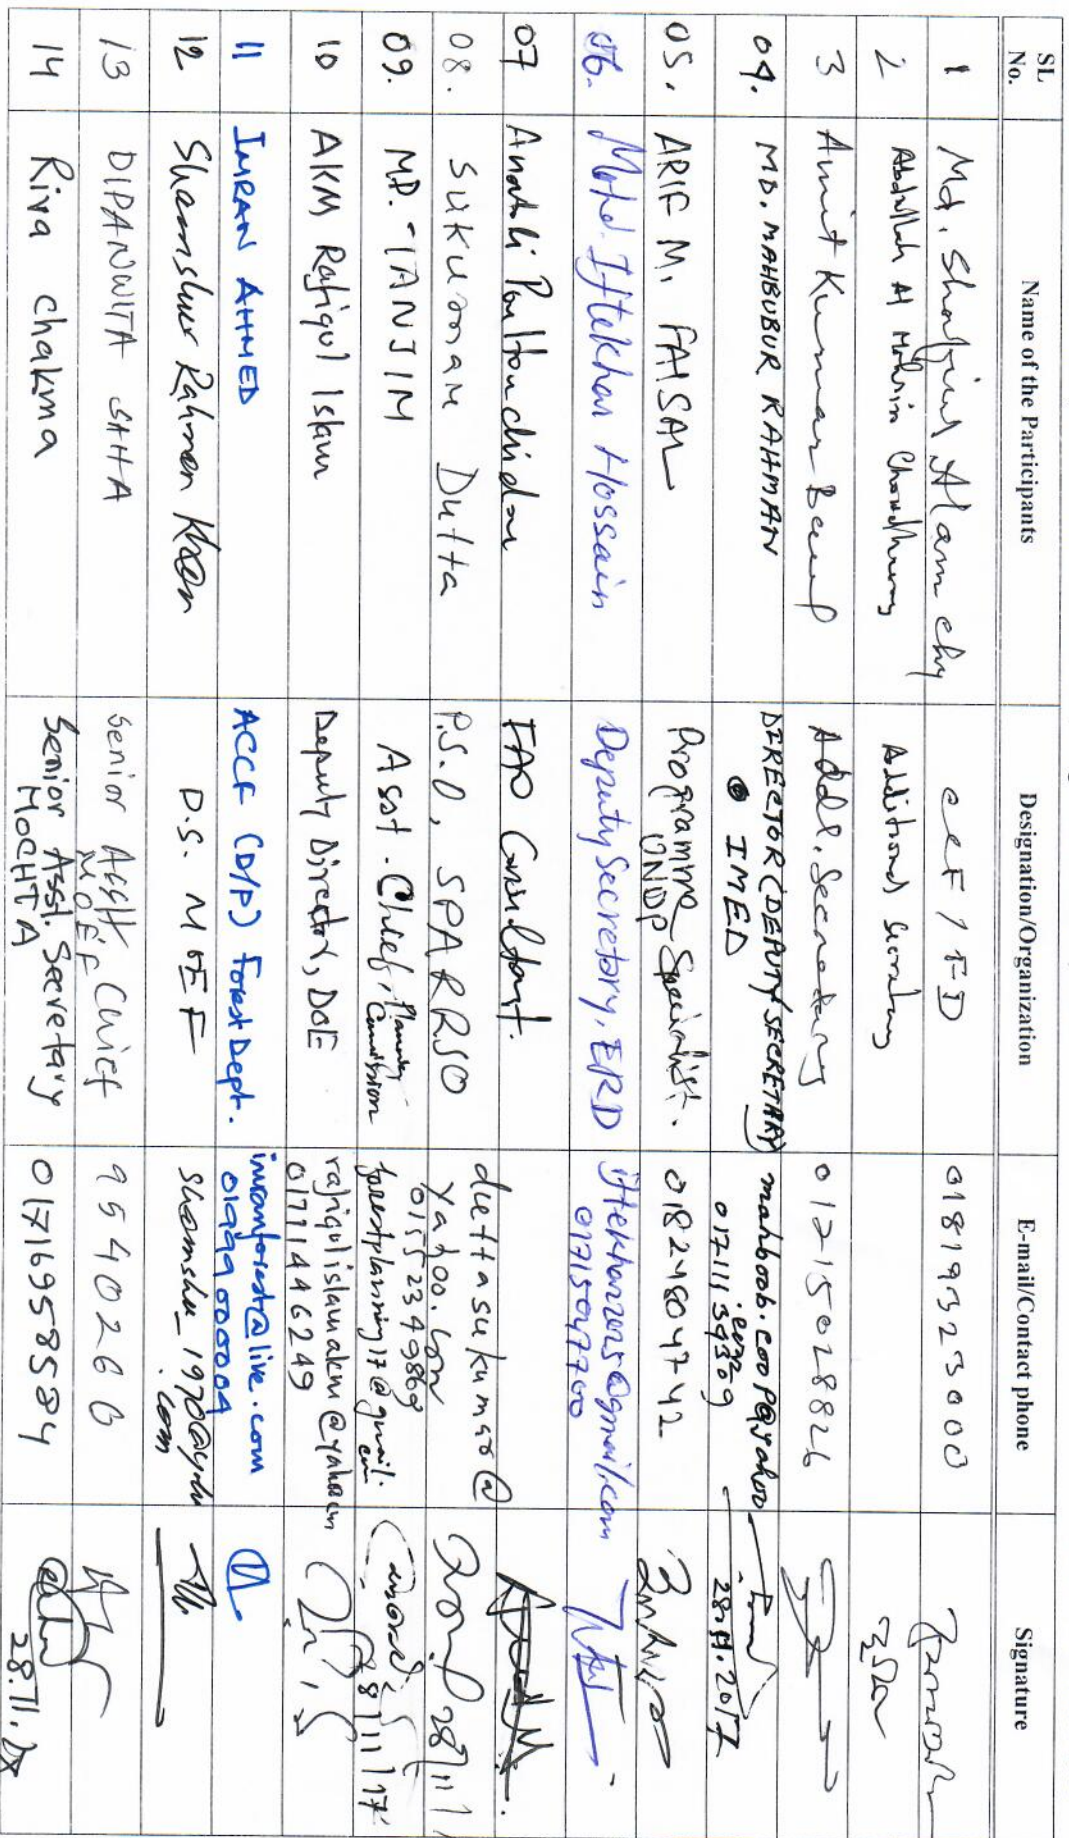 SL No. Name of the Participants Designation/Organization E-mail/Contact phone Signature
1 Md. Shafiul Alam Chy CCF / FD 018193230003
2 Abdullah Al Mohsin Chowdhury Additional Secretary
3 Amit Kumar Baul Addl. Secretary 01715028826
04. MD. MAHBUBUR RAHMAN DIRECTOR (DEPUTY SECRETARY) mahboob.coop@yahoo
IMED 28.11.2017
05. ARIF M. FAISAL Programme Specialist.
UNDP 01824804742
06. Mohd. Iftekhar Hossain Deputy Secretary, ERD
01715047700
07 FAO Consultant.
08. Sukumar Dutta P.S.O, SPARRSO duttasukumar@
yahoo.com
28/11/
09. MD. TANJIM Asst. Chief, Planning
Commission forestplanning17@gmail.
com 28/11/17
10 AKM Rafiqul Islam Deputy Director, DoE
01711446249
11 IMRAN AHMED ACCF (D/P) Forest Dept. imranforest@live.com
01999000004
12 Shamshur Rahman Khan D.S. MOEF
com
13 DIPANWITA SAHA Senior Asstt Chief
MOEF 9540266
14 Riva Chakma Senior Asst. Secretary
MoCHTA 01716958584
28.11.